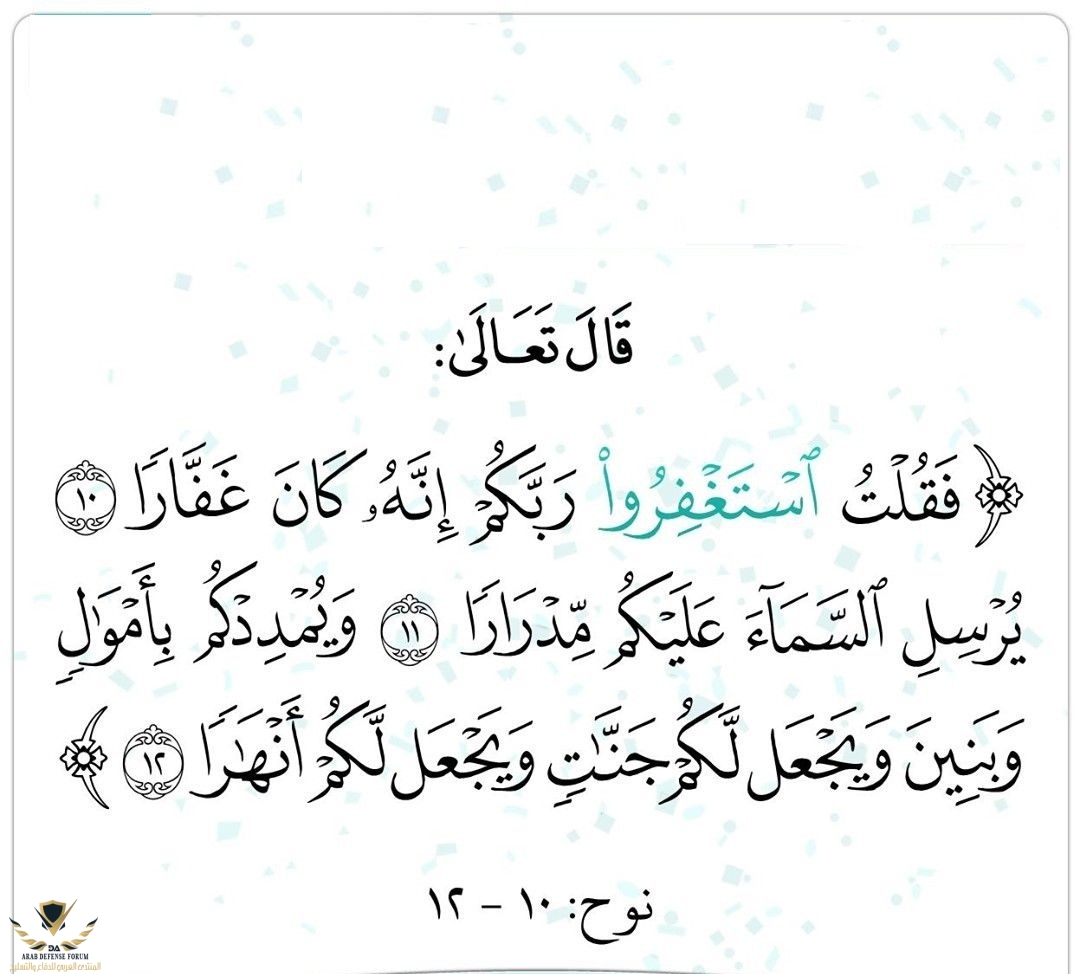 قَالَ تَعَالَىٰ:
﴿ فَقُلْتُ ٱسْتَغْفِرُوا۟ رَبَّكُمْ إِنَّهُۥ كَانَ غَفَّارًا ١٠
يُرْسِلِ ٱلسَّمَآءَ عَلَيْكُم مِّدْرَارًا ١١ وَيُمْدِدْكُم بِأَمْوَٰلٍ
وَبَنِينَ وَيَجْعَل لَّكُمْ جَنَّـٰتٍ وَيَجْعَل لَّكُمْ أَنْهَـٰرًا ١٢ ﴾
نوح: ١٠ - ١٢
DA
ARAB DEFENSE FORUM
المنتدى العربي للدفاع والتسليح